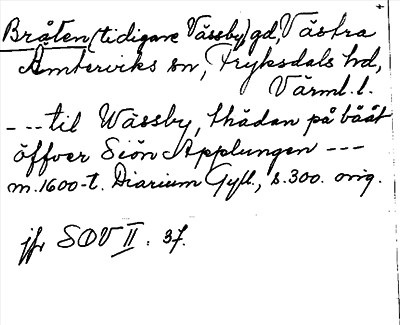 Bråten (tidigare Vässby) gd, Västra
Ämterviks sn, Fryksdals hd,
Värml. l.
--- til Wässby, thädan på bååt
öffver Siön Applungen ---
m. 1600-t. Diarium Gyll., s. 300. orig.
jfr SOV II. 37.